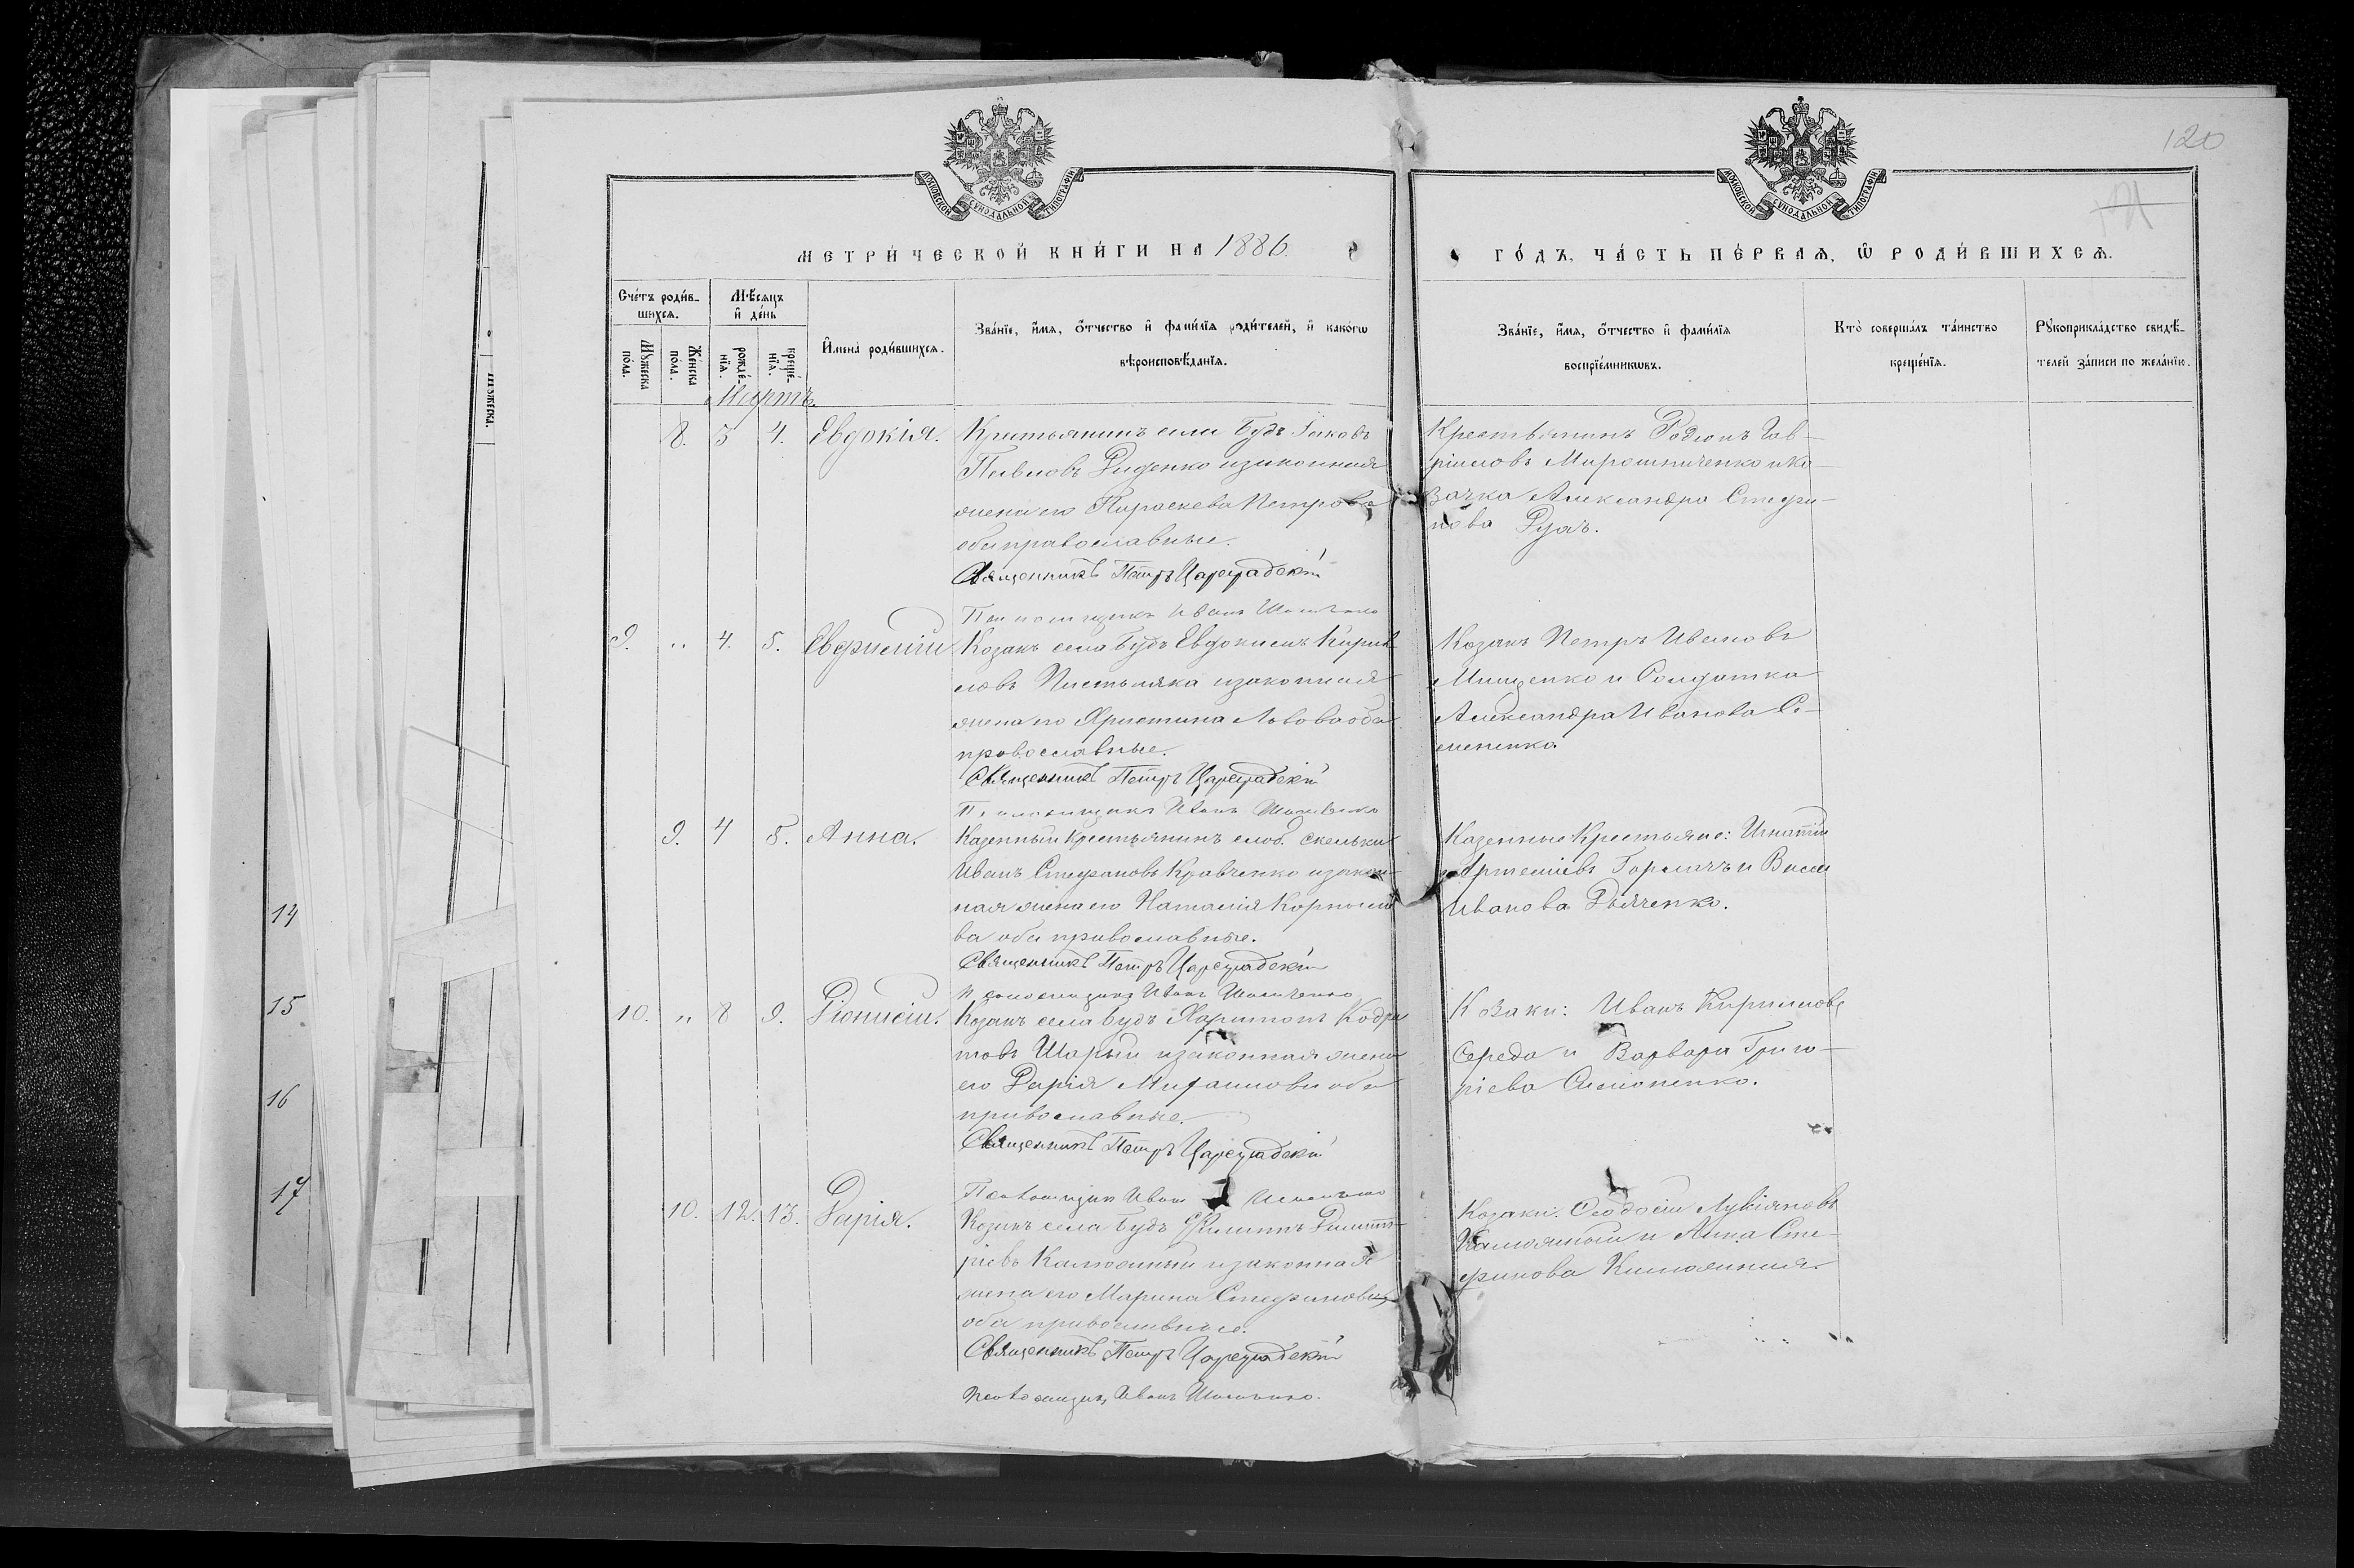 120
МОСКОВСКОЙ СѴНОДАЛЬНОЙ ТИПОГРАФІИ
МОСКОВСКОЙ СѴНОДАЛЬНОЙ ТИПОГРАФІИ
МЕТРИ́ЧЕСКОЙ КНИ́ГИ НА 1886
ГО́ДЪ, ЧА́СТЬ ПЕ́РВАѦ, Ѡ҆ РОДИ́ВШИХСѦ.
Сче́тъ роди́в-
шихсѧ.
Мꙋ́жеска
по́ла.
Же́нска
по́ла.
Мѣ́сѧцъ
и҆ де́нь
рожде́-
нїѧ.
креще́-
нїѧ.
И҆мена̀ роди́вшихсѧ.
Зва́нїе, и҆́мѧ, ѻ҆́тчество и҆ фами́лїѧ роди́телей, и҆ како́гѡ
вѣроисповѣ́данїѧ.
Зва́нїе, и҆́мѧ, ѻ҆́тчество и҆ фами́лїѧ
воспрїе́мникѡвъ.
Кто̀ соверша́лъ та́инство
креще́нїѧ.
Рꙋкоприкла́дство свидѣ́-
телей за́писи по жела́нїю.
Мартъ.
8. 3 4. Евдокія.
Крестьянинъ села Будъ Іаковъ
Павловъ Диденко и законная
жена его Параскева Петрова
оба православные.
Священникъ Петръ Цареградскій
Псаломщикъ Иванъ
Крестьянинъ Родіонъ Гав-
ріиловъ Мирошниченко и ка-
зачка Александра Стефа-
нова
9. " 4. 5. Евфимій
Козакъ села Будъ Евдокимъ Кирил
ловъ и законная
жена его Христина Львова оба
православные.
Священникъ Петръ Цареградскій
Псаломщикъ Иванъ
Козакъ Петръ Ивановъ
Мищенко и Солдатка
Александра Иванова Се-
мененко
9. 4 5. Анна.
Казенный Крестьянинъ слоб. Скельки
Иванъ Стефановъ Кравченко и закон-
ная жена его Наталія Карпо
ва оба православные.
Священникъ Петръ Цареградскій
Псаломщикъ Иванъ
Казенные Крестьяне: Игнатій
Артеміевъ и Васса
Иванова Дьяченко.
10. " 8 9. Діонисій.
Козакъ села Будъ Харитонъ Кодра
товъ Шарый и законная жена
его Дарія Михаилова оба
православные.
Священникъ Петръ Цареградскій
Псаломщикъ Иванъ
Козаки: Иванъ Кирилловъ
Середа и Варвара Григо-
ріева Симоненко.
10. 12. 13. Дарія.
Козакъ села Будъ Филиппъ Димит-
ріевъ Калюжный и законная
жена его Марина Стефанова
оба православные.
Священникъ Петръ Цареградскій
Псаломщикъ Иванъ
Козаки: Ѳеодосій Лукіяновъ
Калюжный и Анна Сте-
фанова Калюжная.
14
15
16
17